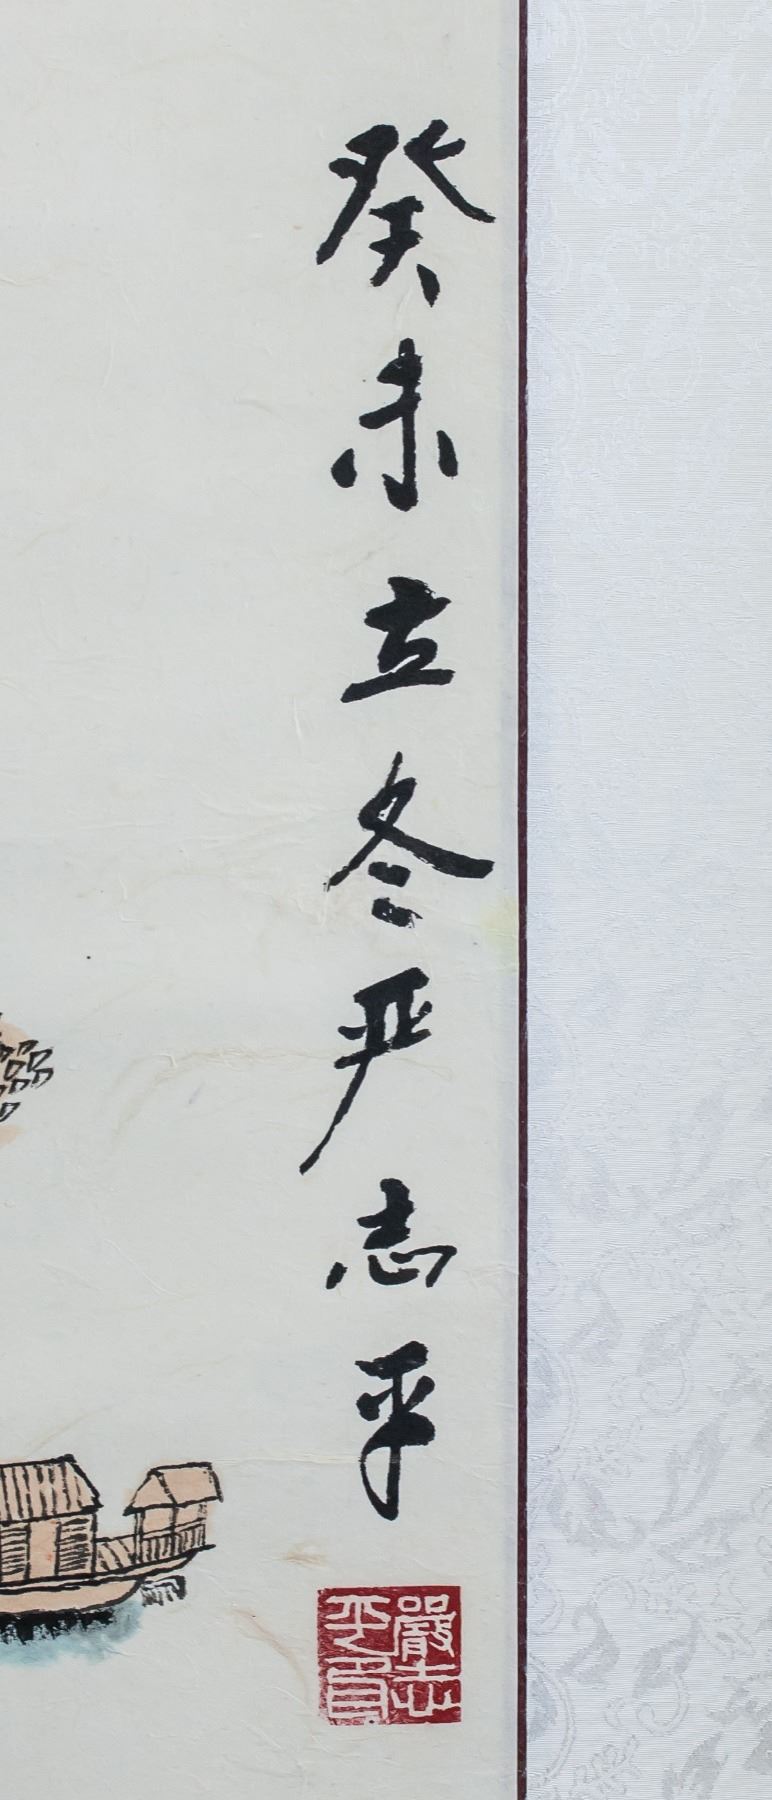 癸未立冬严志平
嚴志
平印